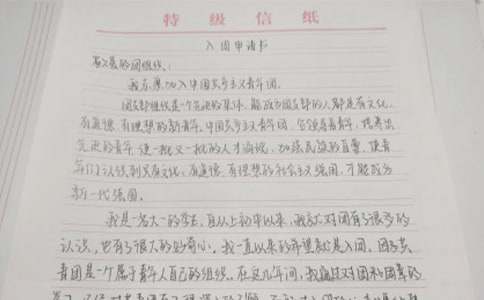 特级信纸
入团申请书
敬爱的团组织：
我志愿加入中国共产主义青年团。
团支部组织是一个先进的集体，能成为团支部的人都是有文化、
有道德、有理想的新青年。中国共产主义青年团，它领导着青年，培养出
先进的青年，使一批又一批的人才涌现，加强民族的重量，使青
年们认识到只有文化、有道德、有理想的社会主义强国，才能成为
新一代强国。
我是一名大一的学生，自从上初中以来，我就对团有了很多的
认识，也有了很大的好奇心。我一直以来的希望就是入团。团
青团是一个属于青年人自己的组织。在这几年间，我通过对团和团章的